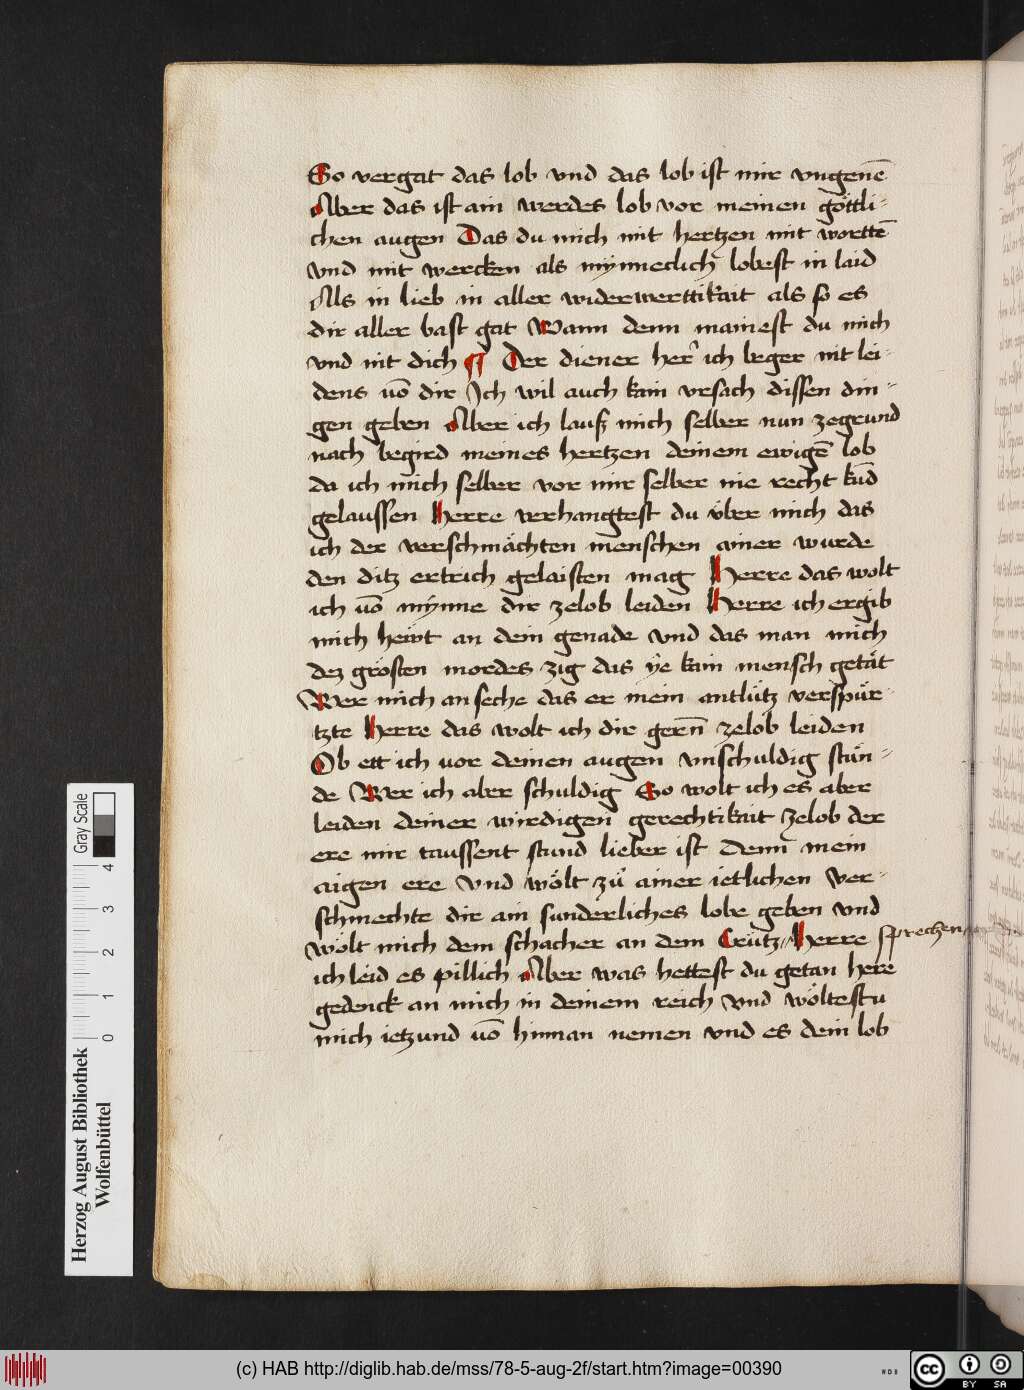 So vergat das lob vnd das lob ist mir vngenē
Aber das ist ain werdes lob vor meinen göttli-
chen augen Das du mich mit hertzen mit worttē
vnd mit wercken als mynneclich lobest in laid
Als in lieb in aller widerwerttikait als so es
dir aller bast gat Wann denn mainest du mich
vnd nit dich ¶ Der diener her ich beger nit lei-
dens vō dir Ich wil auch kain vrsach dissen din-
gen geben Aber ich lauß mich selber nun zegrund
nach begird meines hertzen deinem ewigē lob
da ich mich selber vor mir selber nie recht kūd
gelaussen Herre verhangtest du über mich das
ich der verschmächten menschen ainer wurde
den ditz ertrich gelaisten mag Herre das wolt
ich vō mynne dir zelob leiden Herre ich ergib
mich hewt an dein genade vnd das man mich
dez grösten mordes zig das ye kain mensch getät
Wer mich an seche das er mein antlütz verspür-
tzte Herre das wolt ich dir gern̄ zelob leiden
Ob ett ich vor deinen augen vnschuldig stün-
de Wer ich aber schuldig So wolt ich es aber
leiden deiner wirdigen gerechtikait zelob der
ere mir taussent stund lieber ist Denn mein
aigen ere Vnd wölt zů ainer ietlichen ver-
schmechte dir ain sunderliches lobe geben vnd
wölt mich dem schacher an dem Crütz // Herre sprechen
ich leid es pillich Aber was hettest du getan here
gedenck an mich in deinem reich Vnd wöltestu
mich ietzund vō hinnan nemen vnd es dein lob
Gray Scale
0 1 2 3 4
Herzog August Bibliothek
Wolfenbüttel
(c) HAB http://diglib.hab.de/mss/78-5-aug-2f/start.htm?image=00390
WDB
cc BY SA